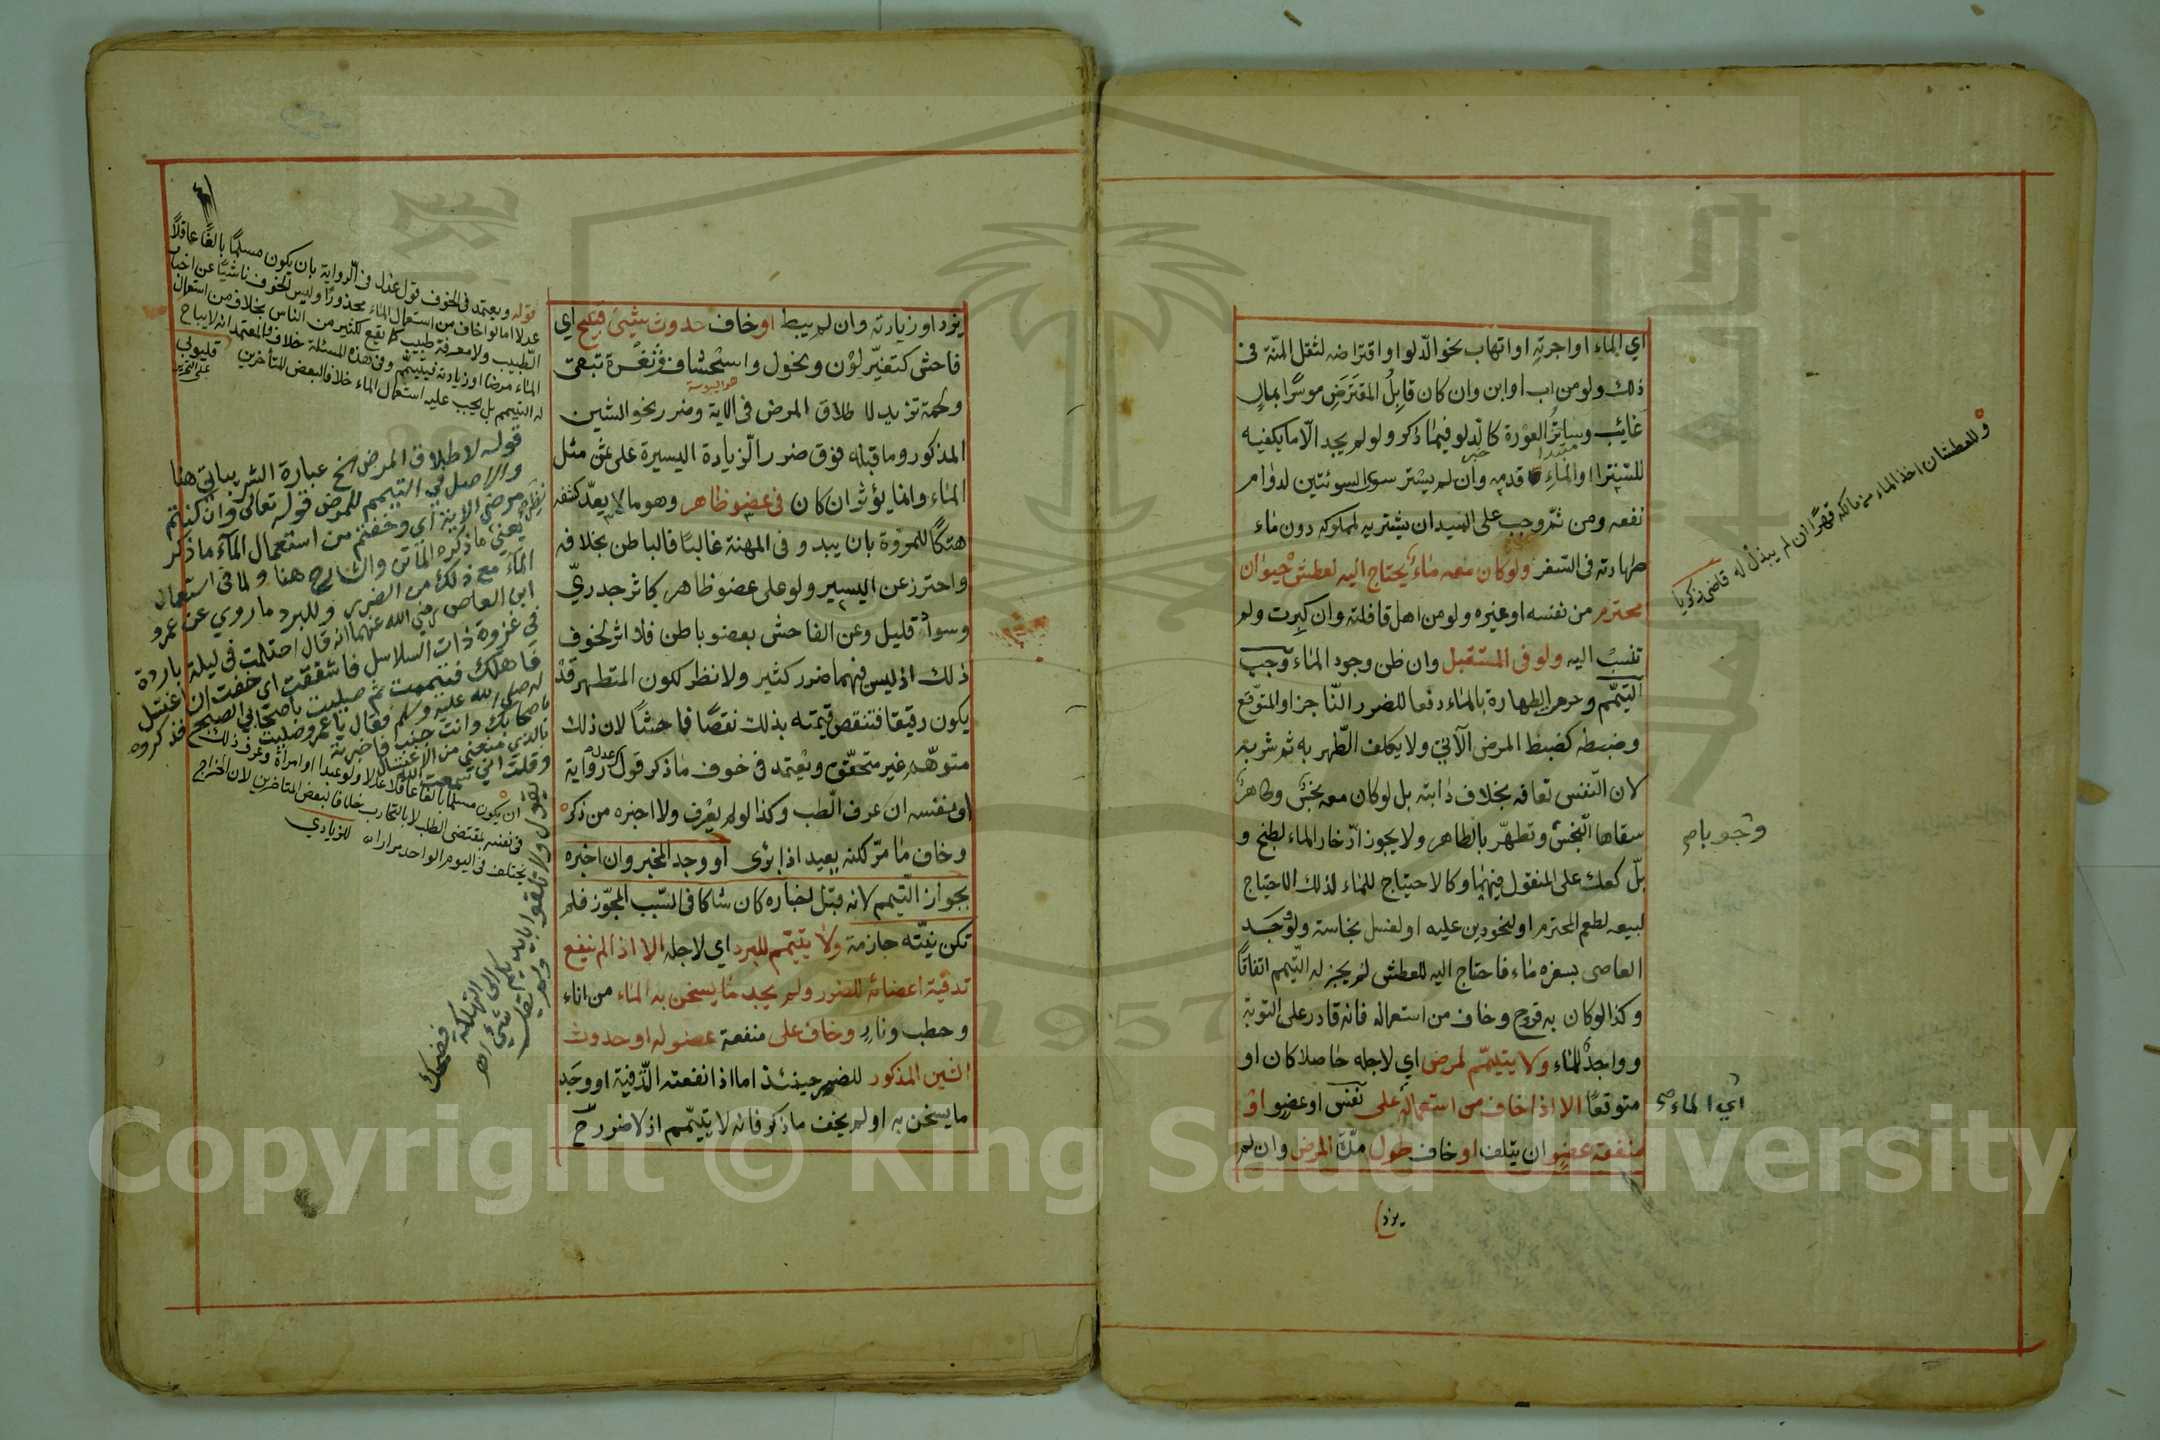 اي الماء او اجرته او اتهاب نحو الدلو او اقتراضه لثقل المنة في
ذلك ولو من اب او ابن وان كان قابل المقترض موسرا بمال
غائب وساتر العورة كالدلو فيما ذكر ولو لم يجد الا ما يكفيه
للستر او الماء قدمه وان لم يشتر سوى السوئتين لدوام
نفعه ومن ثم وجب على السيد ان يشتريه لمملوكه دون ماء
طهارته في السفر ولو كان معه ماء يحتاج اليه لعطش حيوان
محترم من نفسه او غيره ولو من اهل قافلته وان كبرت ولم
تنسب اليه ولو في المستقبل وان ظن وجود الماء وجب
التيمم وحرم الطهارة بالماء دفعا للضرر الناجز او المتوقع
وضبطه كضبط المرض الآتي ولا يكلف الطهر به ثم شربه
لان النفس تعافه بخلاف دابته بل لو كان معه نجس وطاهر
سقاها النجس وتطهر بالطاهر ولا يجوز ادخار الماء لطبخ و
بل كعك على المنقول فيهما وكالاحتياج للماء لذلك الاحتياج
لبيعه لطعم المحترم او لنحو دين عليه او لغسل نجاسة ولو وجد
العاصي بسفره ماء فاحتاج اليه للعطش لم يجز له التيمم اتفاقا
وكذا لو كان به قروح وخاف من استعماله فانه قادر على التوبة
وواجد للماء ولا يتيمم لمرض اي لاجله حاصلا كان او
متوقعا الا اذا خاف من استعماله على نفس او عضو او
منفعة عضو ان يتلف او خاف طول مدة المرض وان لم
يزد
وللعطشان اخذ الماء من مالكه قهرا ان لم يبذل له قاضي زكريا
وجوبا م
اي الماء صح
مبتدا
خبر
يزد او زيادته وان لم يبط او خاف حدوث شيئ قبيح اي
فاحش كتغير لون ونحول واستحشاف وثغرة تبقى
هو اليبوسة
ولحمة تزيد لاطلاق المرض في الاية وضرر نحو الشين
المذكور وما قبله فوق ضرر الزيادة اليسيرة على ثمن مثل
الماء وانما يؤثر ان كان في عضو ظاهر وهو ما لا يعد كشفه
هتكا للمروة بان يبدو في المهنة غالبا فالباطن بخلافه
واحترز عن اليسير ولو على عضو ظاهر كاثر جدري
وسواد قليل وعن الفاحش بعضو باطن فلا اثر لخوف
ذلك اذ ليس فيهما ضرر كثير ولا نظر لكون المتطهر قد
يكون رقيقا فتنقص قيمته بذلك نقصا فاحشا لان ذلك
متوهم غير متحقق ويعتمد في خوف ما ذكر قول عدل رواية
او نفسه ان عرف الطب وكذا لو لم يعرف ولا اخبره من ذكر
وخاف ما مر لكنه يعيد اذا برئ او وجد المخبر وان اخبره
بجواز التيمم لانه قبل اخباره كان شاكا في السبب المجوز فلم
تكن نيته جازمة ولا يتيمم للبرد اي لاجله الا اذا لم تنفع
تدفية اعضائه للضرر ولم يجد ما يسخن به الماء من اناء
وحطب ونار وخاف على منفعة عضو له او حدوث
الشين المذكور للضرر حينئذ اما اذا نفعته التدفية او وجد
ما يسخن به او لم يخف ما ذكر فانه لا يتيمم اذ لا ضرر ح
قوله ويعتمد في الخوف قول عدل في الرواية بان يكون مسلما بالغا عاقلا
عدلا اما لو خاف من استعمال الماء محذورا وليس الخوف ناشئا عن اخبار
الطبيب ولا معرفة طبيب كما يقع لكثير من الناس بخلاف من استعمال
الماء مرضا او زيادته فيتيمم وفي هذه المسئلة خلاف والمعتمد انه لا يباح
له التيمم بل يجب عليه استعمال الماء خلافا لبعض المتأخرين قليوبي
على التحرير
قوله لاطلاق المرض الخ عبارة الشربياني هنا
والاصل في التيمم للمرض قوله تعالى وان كنتم
مرضى الاية اي وخفتم من استعمال الماء ما ذكر
يعني ما ذكره الماتن والشارح هنا ولما في استعمال
الماء مع ذلك من الضرر وللبرد ما روي عن عمرو
ابن العاص رضي الله عنهما انه قال احتلمت في ليلة باردة
في غزوة ذات السلاسل فاشفقت اي خفت ان اغتسل
فاهلك فتيممت ثم صليت باصحابي الصبح فذكروه
له صلى الله عليه وسلم فقال يا عمرو صليت
باصحابك وانت جنب فاخبرته
بالذي منعني من الاغتسال
وقلت اني سمعت الله
يقول ولا تلقوا بايديكم
الى التهلكة
فضحك
ولم يقل شيئ اهـ
ان يكون مسلما بالغا عاقلا عدلا ولو عبدا او امراة وعرف ذلك
في نفسه بمقتضى الطب لا بالتجارب خلافا لبعض المتاخرين لان المزاج
يختلف في اليوم الواحد مرارا اهـ للزيادي
Copyright © King Saud University
1957